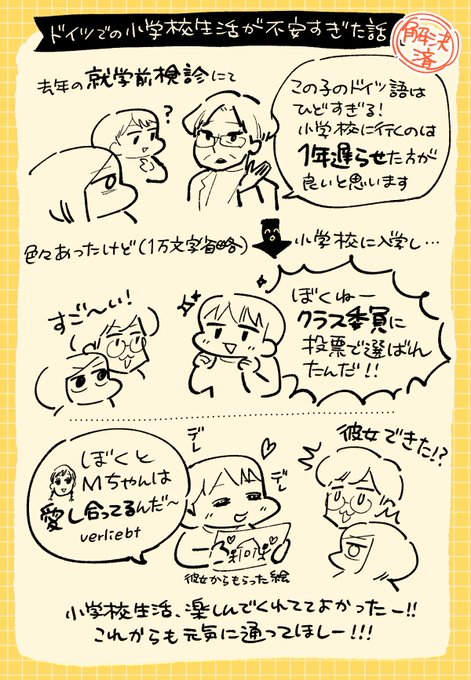 ドイツでの小学校生活が不安すぎた話
解決
済
去年の就学前検診にて
?
この子のドイツ語は
ひどすぎる!
小学校に行くのは
1年遅らせた方が
良いと思います
色々あったけど(1万文字省略)
小学校に入学し…
すご〜い!
ぼくねー
クラス委員に
投票で選ばれ
たんだ!!
彼女できた!?
デレ
デレ
ぼくと
Mちゃんは
愛し合ってるんだ〜
verliebt
彼女からもらった絵
小学校生活、楽しんでくれててよかったー!!
これからも元気に通ってほしー!!!